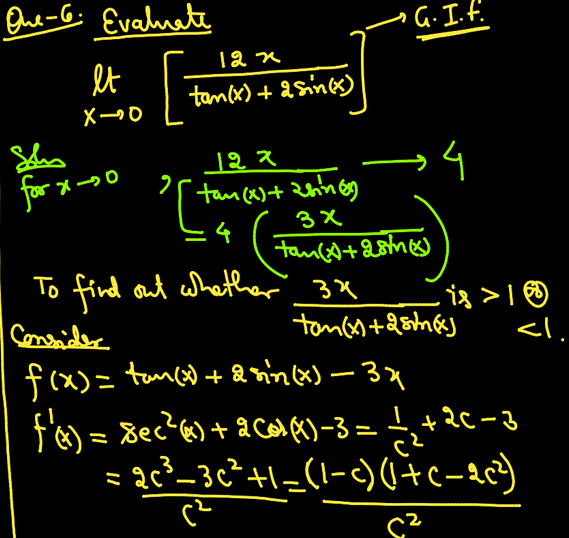 Que-6. Evaluate → G.I.f.
lt x→0 [ 12x / (tan(x) + 2sin(x)) ]
Soln
for x→0, 12x / (tan(x) + 2sin(x)) → 4
= 4 ( 3x / (tan(x) + 2sin(x)) )
To find out whether 3x / (tan(x) + 2sin(x)) is > 1 or < 1.
Consider
f(x) = tan(x) + 2sin(x) - 3x
f'(x) = sec²(x) + 2cos(x) - 3 = 1/c² + 2c - 3
= (2c³ - 3c² + 1) / c² = (1-c)(1+c-2c²) / c²